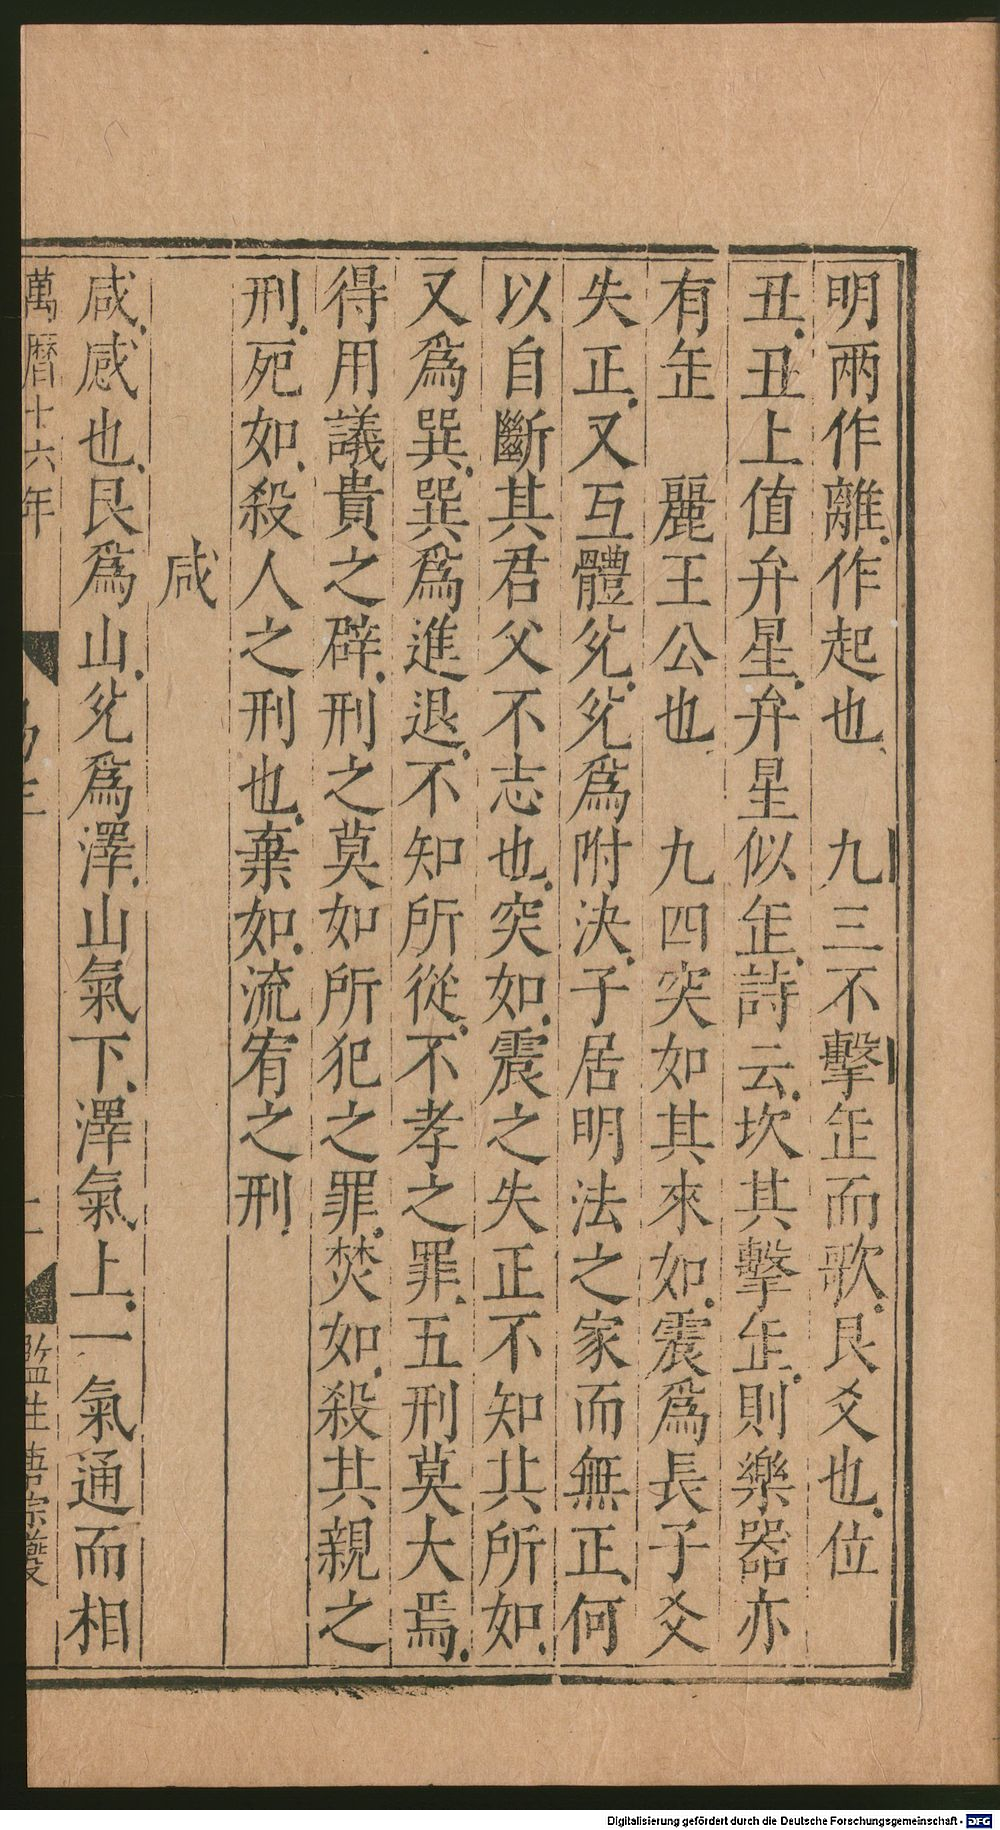 明兩作離作起也　九三不擊缶而歌艮爻也位
丑丑上值弁星弁星似缶詩云坎其擊缶則樂器亦
有缶　麗王公也　九四突如其來如震爲長子爻
失正又互體兊兊爲附決子居明法之家而無正何
以自斷其君父不志也突如震之失正不知其所如
又爲巽巽爲進退不知所從不孝之罪五刑莫大焉
得用議貴之辟刑之莫如所犯之罪焚如殺其親之
刑死如殺人之刑也棄如流宥之刑
咸
咸感也艮爲山兊爲澤山氣下澤氣上二氣通而相
萬曆十六年
監生
Digitalisierung gefördert durch die Deutsche Forschungsgemeinschaft - DFG